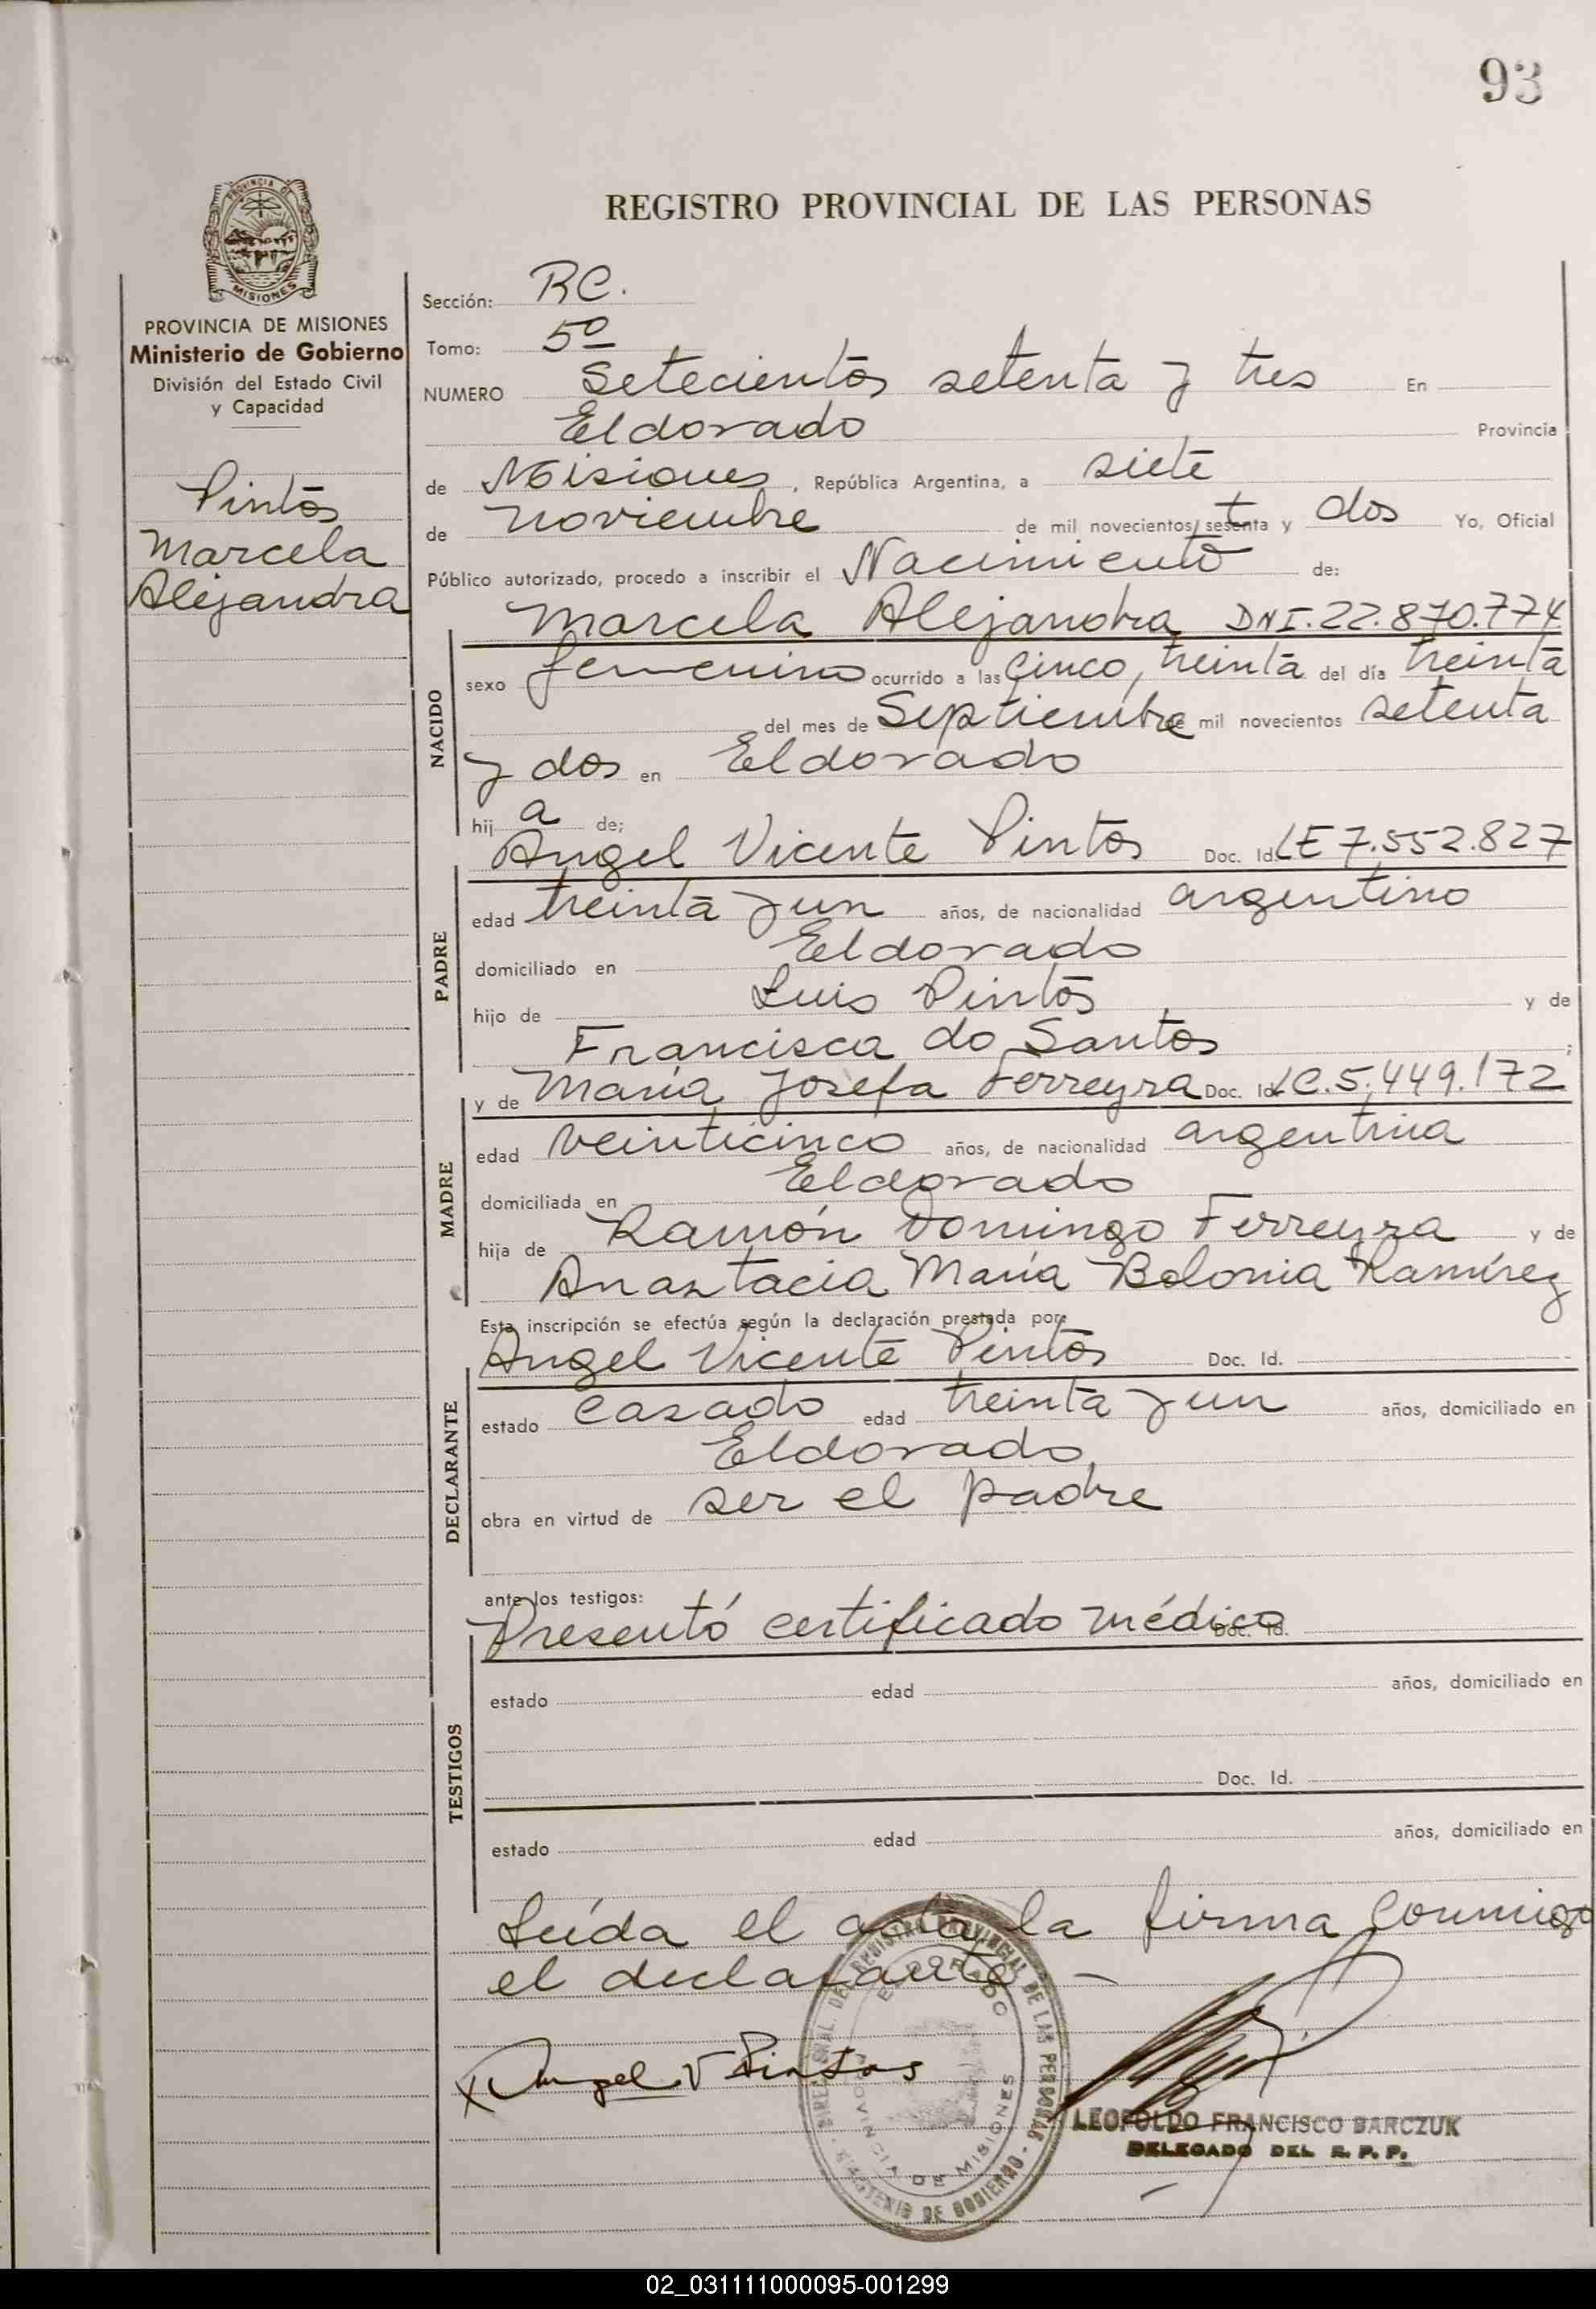 93
REGISTRO PROVINCIAL DE LAS PERSONAS
PROVINCIA DE MISIONES
PROVINCIA DE MISIONES
Ministerio de Gobierno
División del Estado Civil
y Capacidad
Pintos
Marcela
Alejandra
Sección: RC.
Tomo: 5º
NUMERO Setecientos setenta y tres En
Eldorado Provincia
de Misiones, República Argentina, a siete
de noviembre de mil novecientos setenta y dos Yo, Oficial
Público autorizado, procedo a inscribir el Nacimiento de:
NACIDO
Marcela Alejandra DNI.22.870.774
sexo femenino ocurrido a las Cinco, treinta del día treinta
del mes de Septiembre de mil novecientos setenta
y dos en Eldorado
hij a de;
PADRE
Angel Vicente Pintos Doc. Id. LE 7.552.827
edad treinta y un años, de nacionalidad argentino
domiciliado en Eldorado
hijo de Luis Pintos y de
Francisca do Santos ;
MADRE
y de María Josefa Ferreyra Doc. Id. LC.5.449.172
edad veinticinco años, de nacionalidad argentina
domiciliada en Eldorado
hija de Ramón Domingo Ferreyra y de
Anastacia María Bolonia Ramírez
Esta inscripción se efectúa según la declaración prestada por:
DECLARANTE
Angel Vicente Pintos Doc. Id.
estado casado edad treinta y un años, domiciliado en
Eldorado,
obra en virtud de ser el padre
ante los testigos:
TESTIGOS
Presentó certificado médico Doc. Id.
estado edad años, domiciliado en
Doc. Id.
estado edad años, domiciliado en
Leída el acta, la firma conmigo
el declarante —
x Angel V Pintos
DEL REGISTRO PROVINCIAL DE LAS PERSONAS
ELDORADO
PROVINCIA DE MISIONES
MINISTERIO DE GOBIERNO
LEOPOLDO FRANCISCO BARCZUK
DELEGADO DEL R. P. P.
02_031111000095-001299